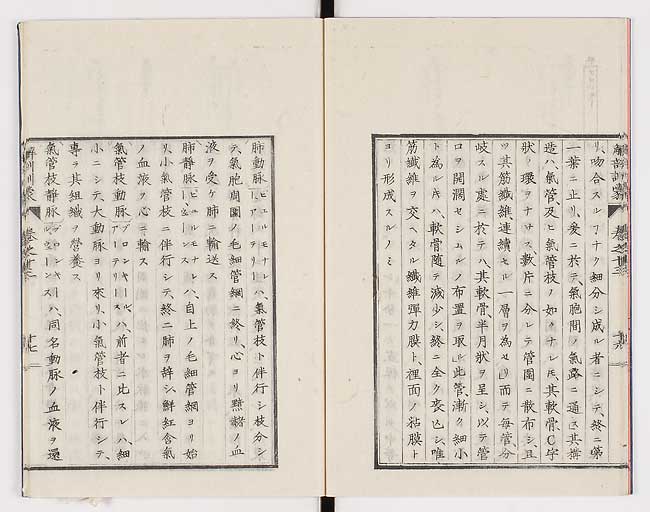 リ、吻合スルヿナク細分シ成ル者ニシテ、終ニ第
一葉ニ止リ、爰ニ於テ、氣胞間ノ氣路ニ通ス其搆
造ハ、氣管及ヒ氣管枝ノ如クナレ𪜈、其軟骨C字
狀ノ環ヲナサス、數片ニ分レテ管圍ニ散布シ、且
ツ其筋纖維連續セル一層ヲ為セリ、而テ每管分
岐スル處ニ於テハ、其軟骨、半月狀ヲ呈シ、以テ管
口ヲ開濶セシムルノ布置ヲ取ル此管、漸ク細小
ト為ル𪜈ハ、軟骨隨テ減少シ、終ニ全ク喪亡シ、唯
筋纖維ヲ交ヘタル纖維彈力膜ト、裡面ノ粘膜ト
ヨリ形成スルノミ
解剖訓蒙
卷之廿三
十六
肺動脉ピュルモナレアーテリーハ、氣管枝ト伴行シ枝分シ
テ、氣胞周圍ノ毛細管網ニ終リ、心ヨリ黯赭ノ血
液ヲ受ケ肺ニ輸送ス
肺静脉ピュルモンスレベーンスハ、自上ノ毛細管網ヨリ始
リ、小氣管枝ニ伴行シテ、終ニ肺ヲ辞シ、鮮紅含氣
ノ血液ヲ心ニ輸ス
氣管枝動脉ブロンキールアーテリースハ、前者ニ比スレハ、細
小ニシテ、大動脉ヨリ來リ、小氣管枝ト伴行シテ、
專ラ其組織ヲ營養ス
氣管枝静脉ブロンキールベーンスハ、同名動脉ノ血液ヲ還
解剖訓蒙
卷之廿三
十七